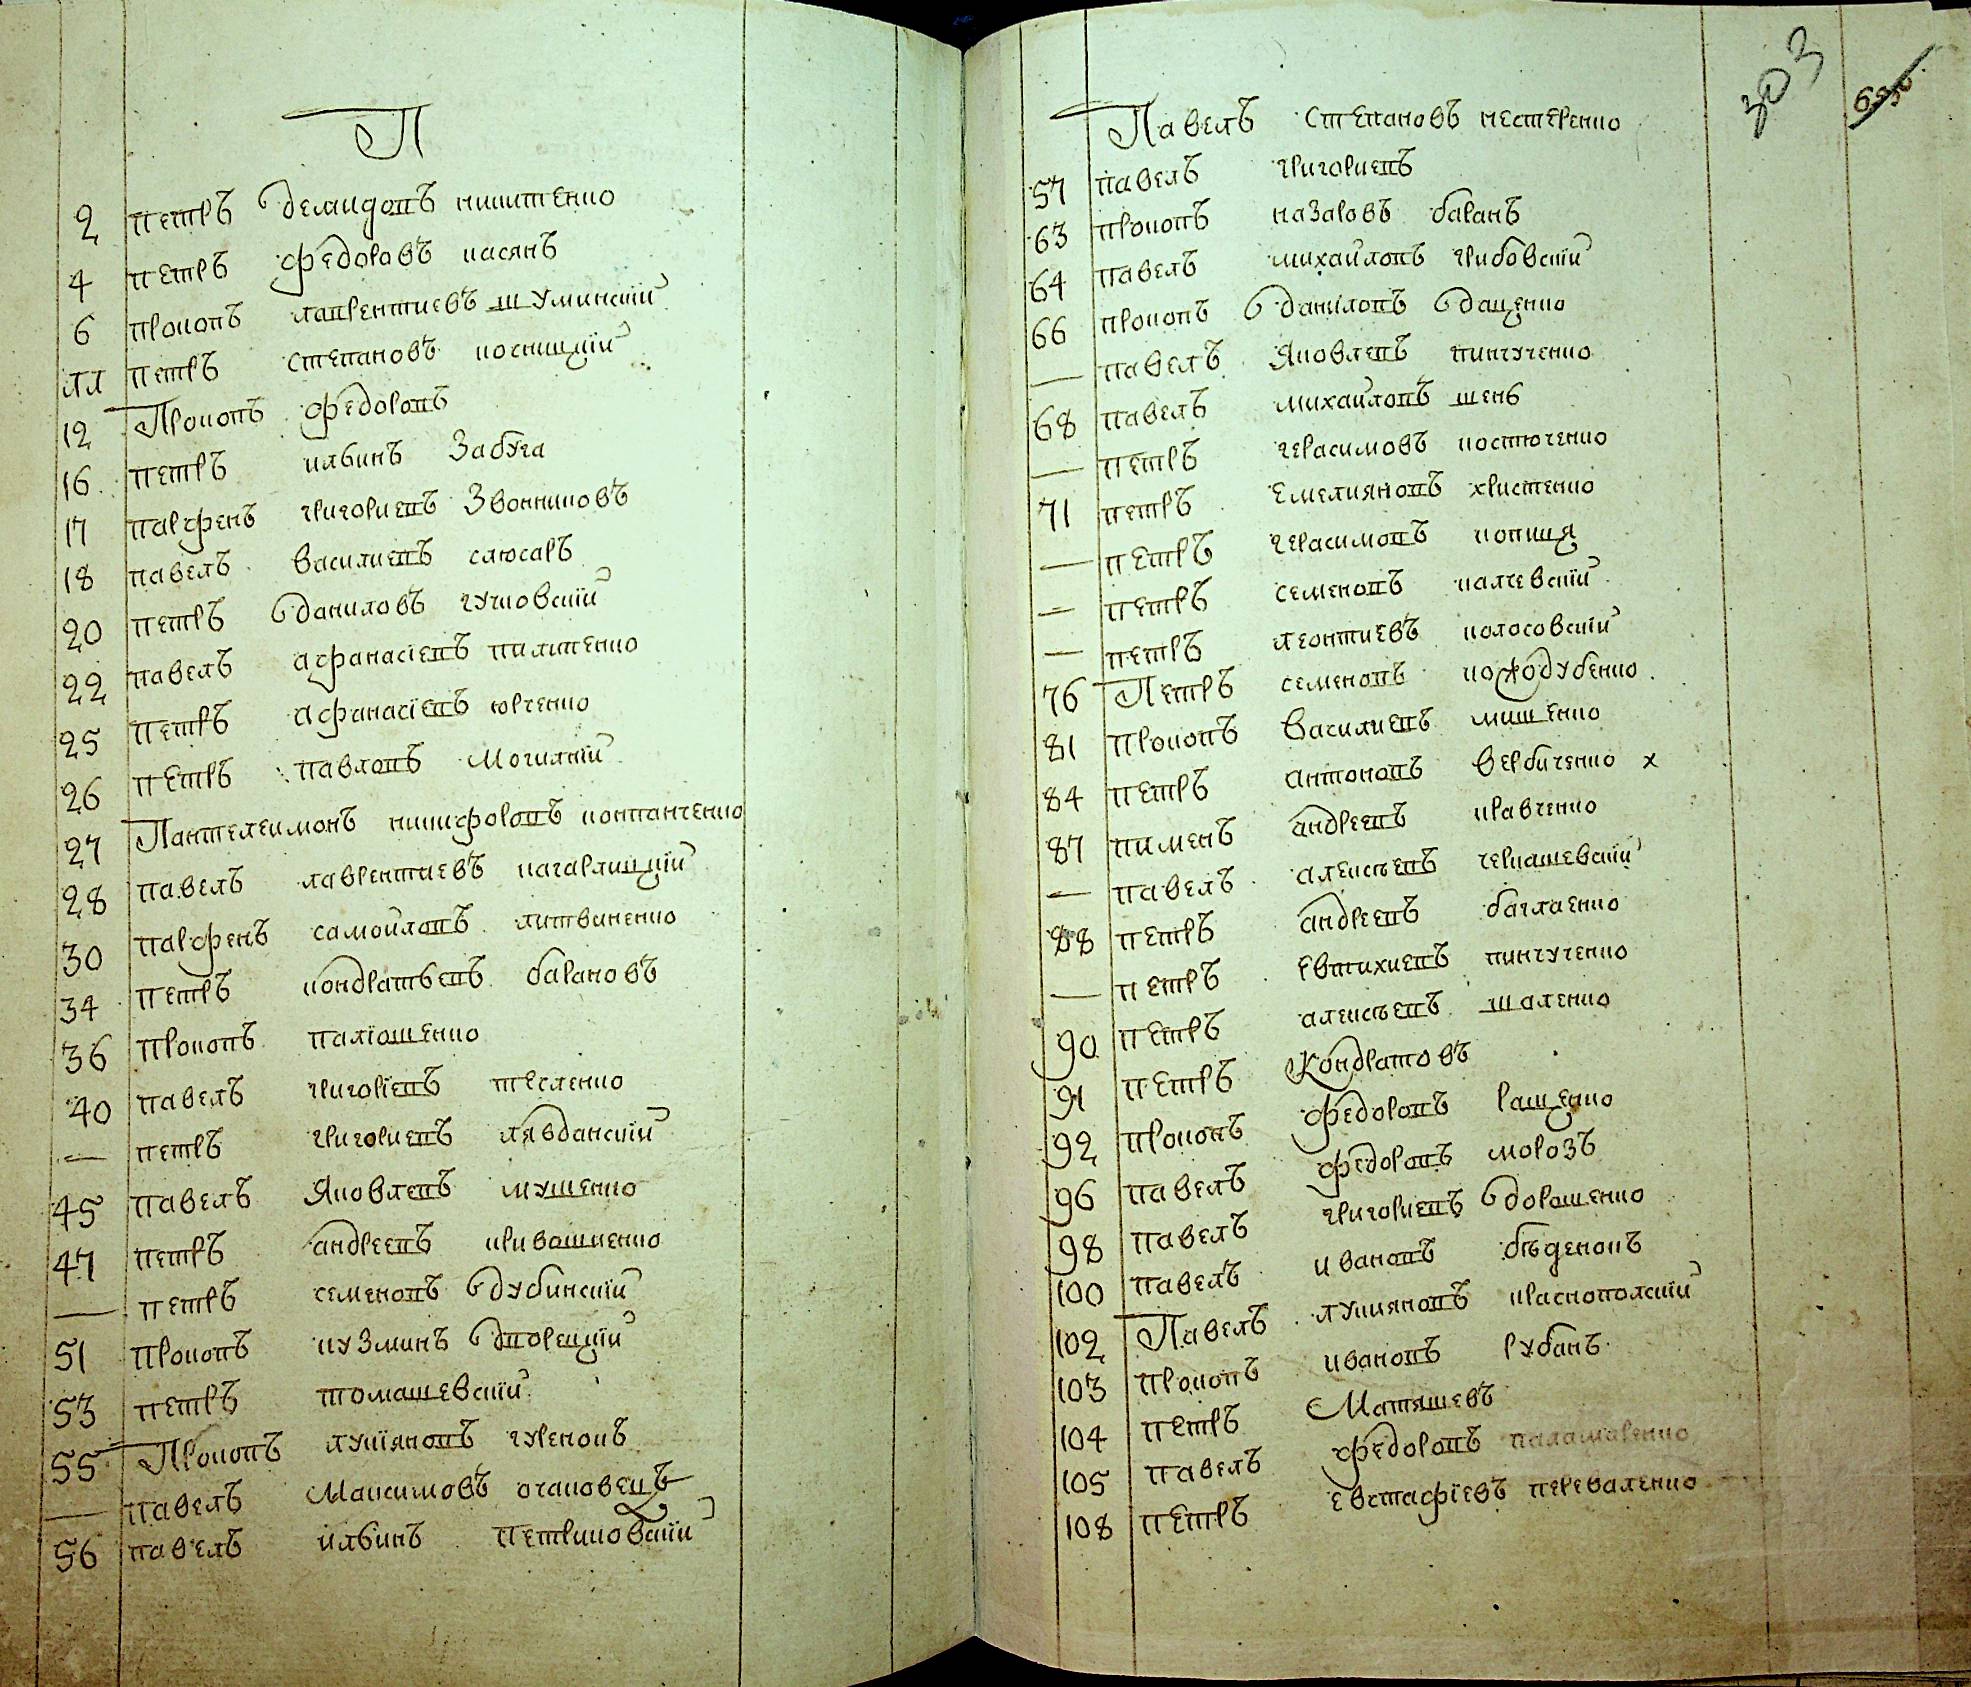 П
2 петръ демидовъ никитенко
4 петръ федоровъ касянъ
6 прокопъ лаврентиевъ шуминскій
11 петръ степановъ косницкій
12 Прокопъ федоровъ
16 петръ ильинъ Забуга
17 парфенъ григориевъ Звонниковъ
18 павелъ василиевъ слюсаръ
20 петръ даниловъ гучковскій
22 павелъ афанасіевъ пилипенко
25 петръ афанасіевъ юрченко
26 петръ павловъ Могилній
27 Пантелеимонъ никифоровъ контанченко
28 павелъ лаврентиевъ кагарлицкій
30 парфенъ самойловъ литвиненко
34 петръ кондратьевъ барановъ
36 прокопъ паліошенко
40 павелъ григоріевъ тесленко
— петръ григориевъ лявданскій
45 павелъ Яковлевъ мушенко
47 петръ андреевъ кривошиенко
— петръ семеновъ дубинскій
51 прокопъ кузминъ дворецкій
53 петръ томашевскій
55 Прокопъ лукіяновъ гуренокъ
— павелъ Максимовъ очаковецъ
56 павелъ ильинъ петриковскій
303
Павелъ степановъ нестеренко
57 павелъ григориевъ
63 прокопъ назаровъ баранъ
64 павелъ михайловъ грибовскій
66 прокопъ даніловъ даценко
— павелъ Яковлевъ пинчученко
68 павелъ михайловъ шень
— петръ герасимовъ костюченко
71 петръ Емелияновъ христенко
— петръ герасимовъ копиця
— петръ семеновъ калчевскій
— петръ леонтиевъ колосовскій
76 Петръ семеновъ кожодубенко
81 прокопъ василиевъ мишенко
84 петръ антоновъ вербиченко х
87 пименъ андреевъ кравченко
— павелъ алексѣевъ черкашевскій
88 петръ андреевъ баглаенко
— петръ Евтихиевъ пинчученко
90 петръ алексѣевъ шаленко
91 петръ Кондратовъ
92 прокопъ федоровъ ращенко
96 павелъ федоровъ морозъ
98 павелъ григориевъ дорошенко
100 павелъ ивановъ бѣденокъ
102 Павелъ лукияновъ краснополскій
103 прокопъ ивановъ рубанъ
104 петръ Матяшевъ
105 павелъ федоровъ паламаренко
108 петръ евстафіевъ переваленко